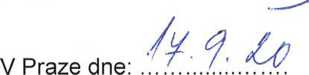 V Praze dne: 17. 9. 20